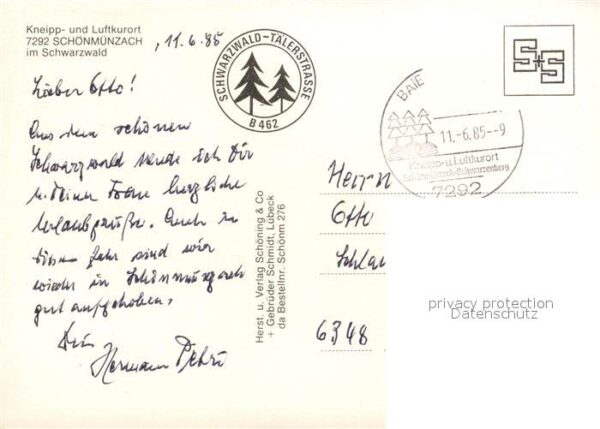 Kneipp- und Luftkurort
7292 SCHÖNMÜNZACH
im Schwarzwald
, 11.6.85
SCHWARZWALD-TÄLERSTRASSE
B 462
S+S
BAIE
11.-6.85--9
Kneipp-u.Luftkurort
Schönmünzach-Schwarzenberg
7292
Lieber Otto!
Aus dem schönen
Schwarzwald sende ich Dir
u. Deiner Frau herzliche
Urlaubsgrüße. Auch in
diesem Jahr sind wir
wieder in Schönmünzach
gut aufgehoben.
Dein
Hermann
Herst. u. Verlag Schöning & Co
+ Gebrüder Schmidt, Lübeck
da Bestellnr. Schönm 276
Herrn
Otto
Schla
6348
privacy protection
Datenschutz